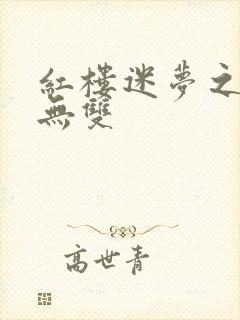 紅樓迷夢之
無雙
高世青